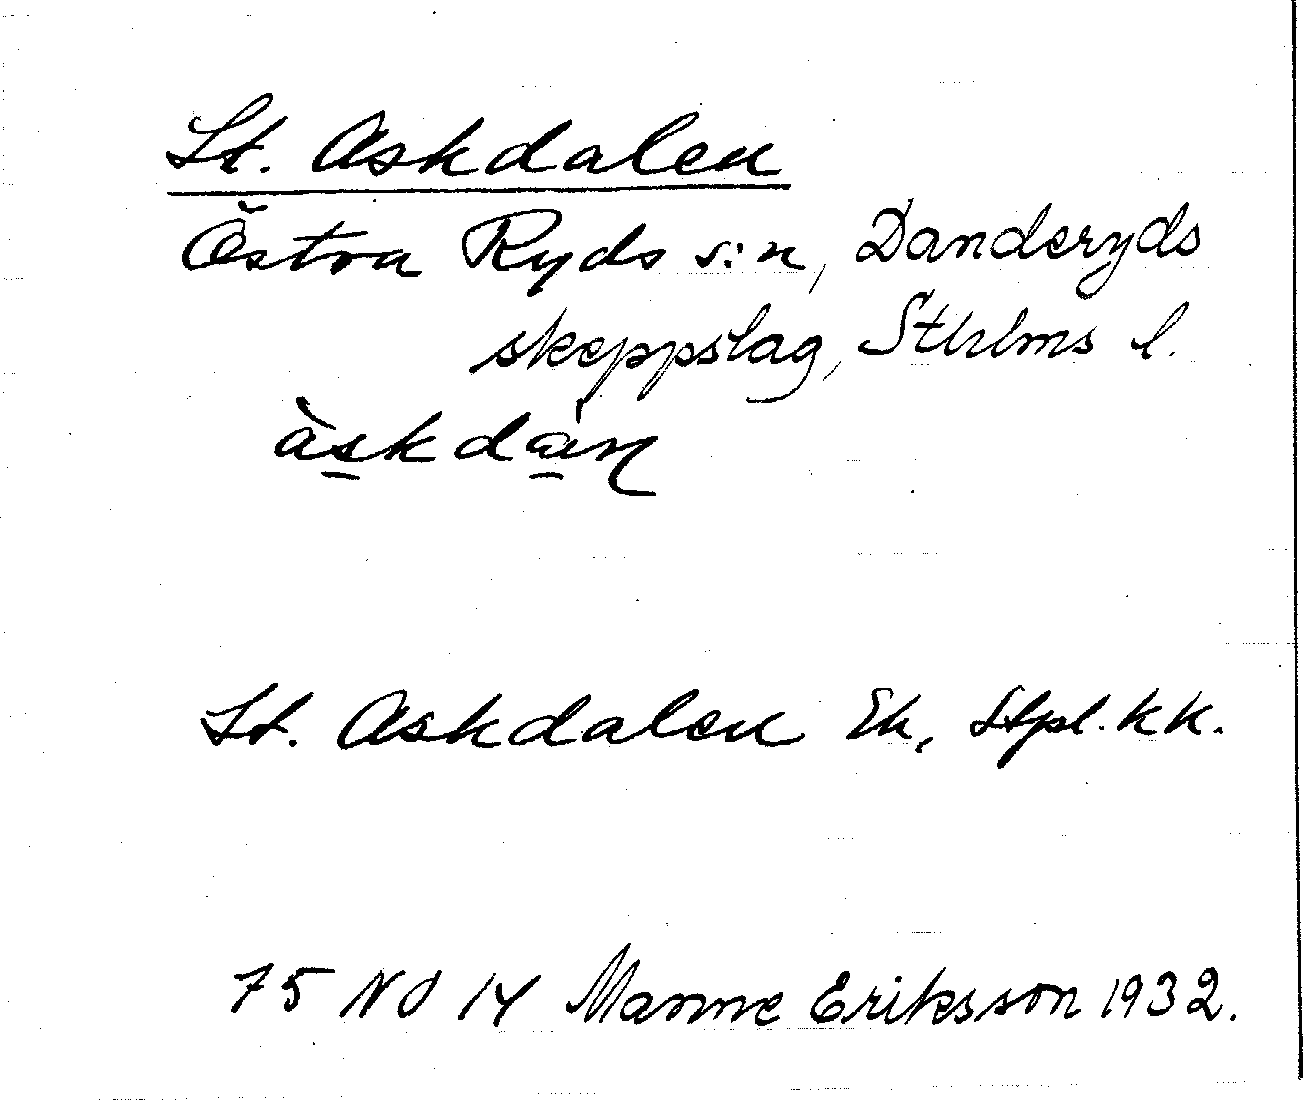 St. Askdalen
Östra Ryds s:n, Danderyds
skeppslag, Sthlms l.
àskdàn
St. Askdalen Ek, Stpl. kk.
75 NO 14 Manne Eriksson 1932.